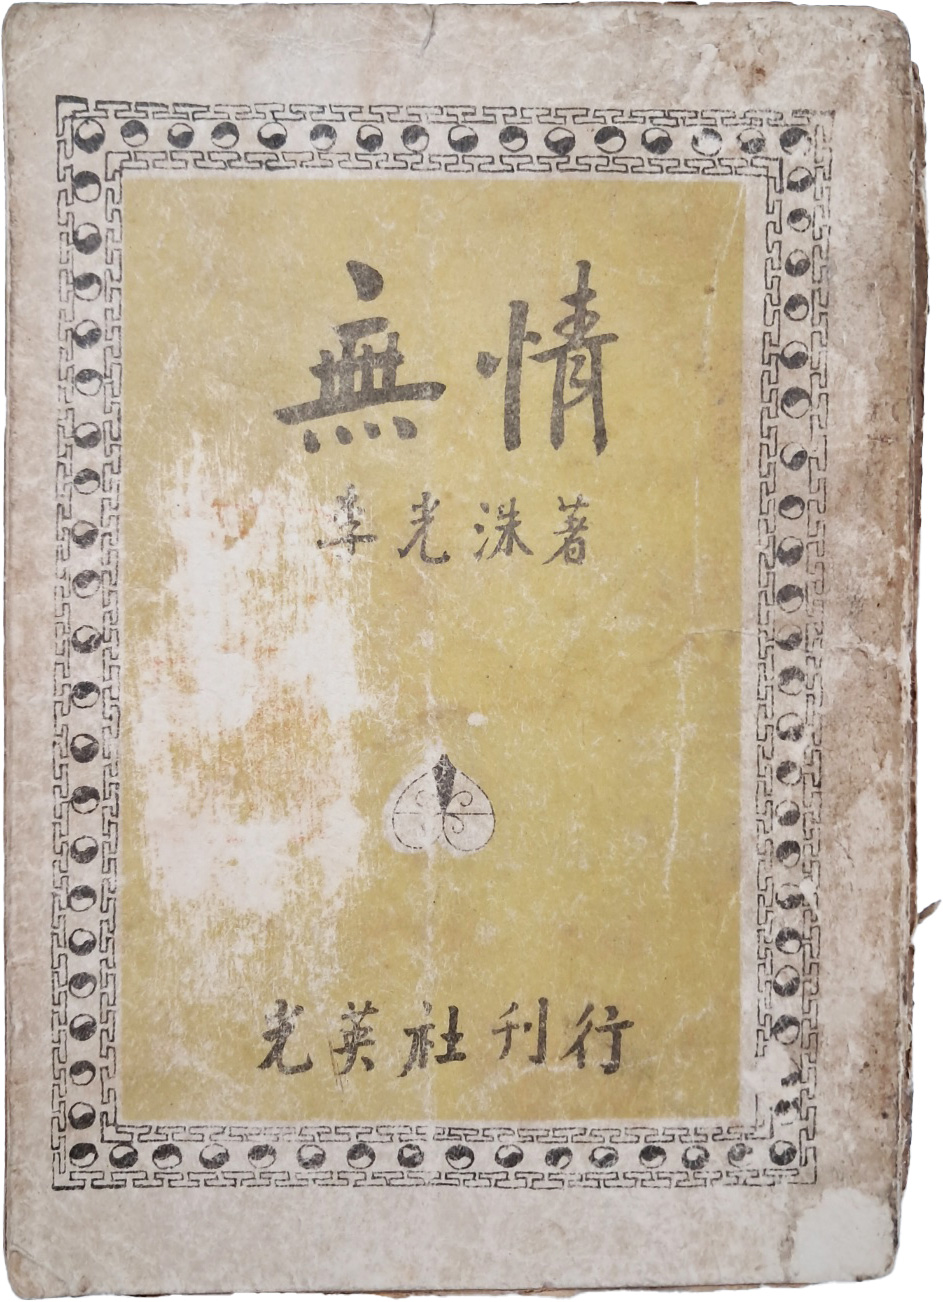 無情
李光洙著
光英社刊行